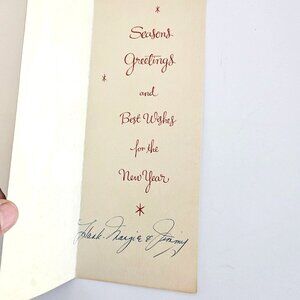 Seasons
Greetings
and
Best Wishes
for the
New Year
Hank - Margie & Jimmy